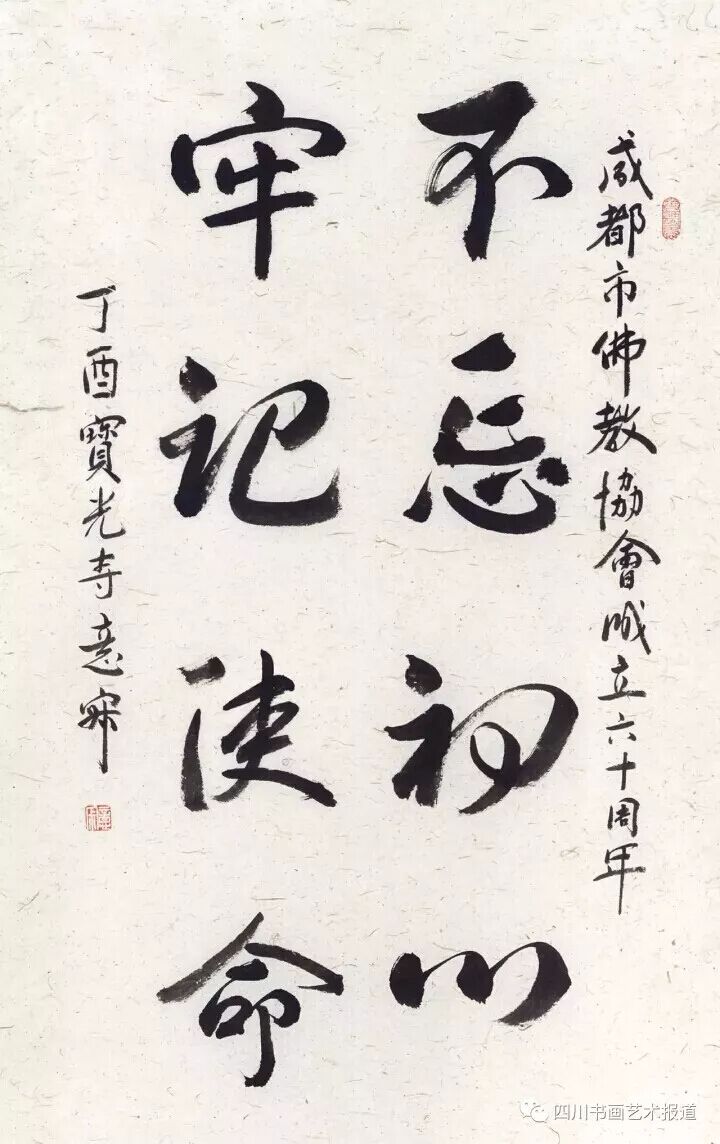 成都市佛教協會成立六十周年
不忘初心
牢記使命
丁酉寳光寺意寂
四川书画艺术报道